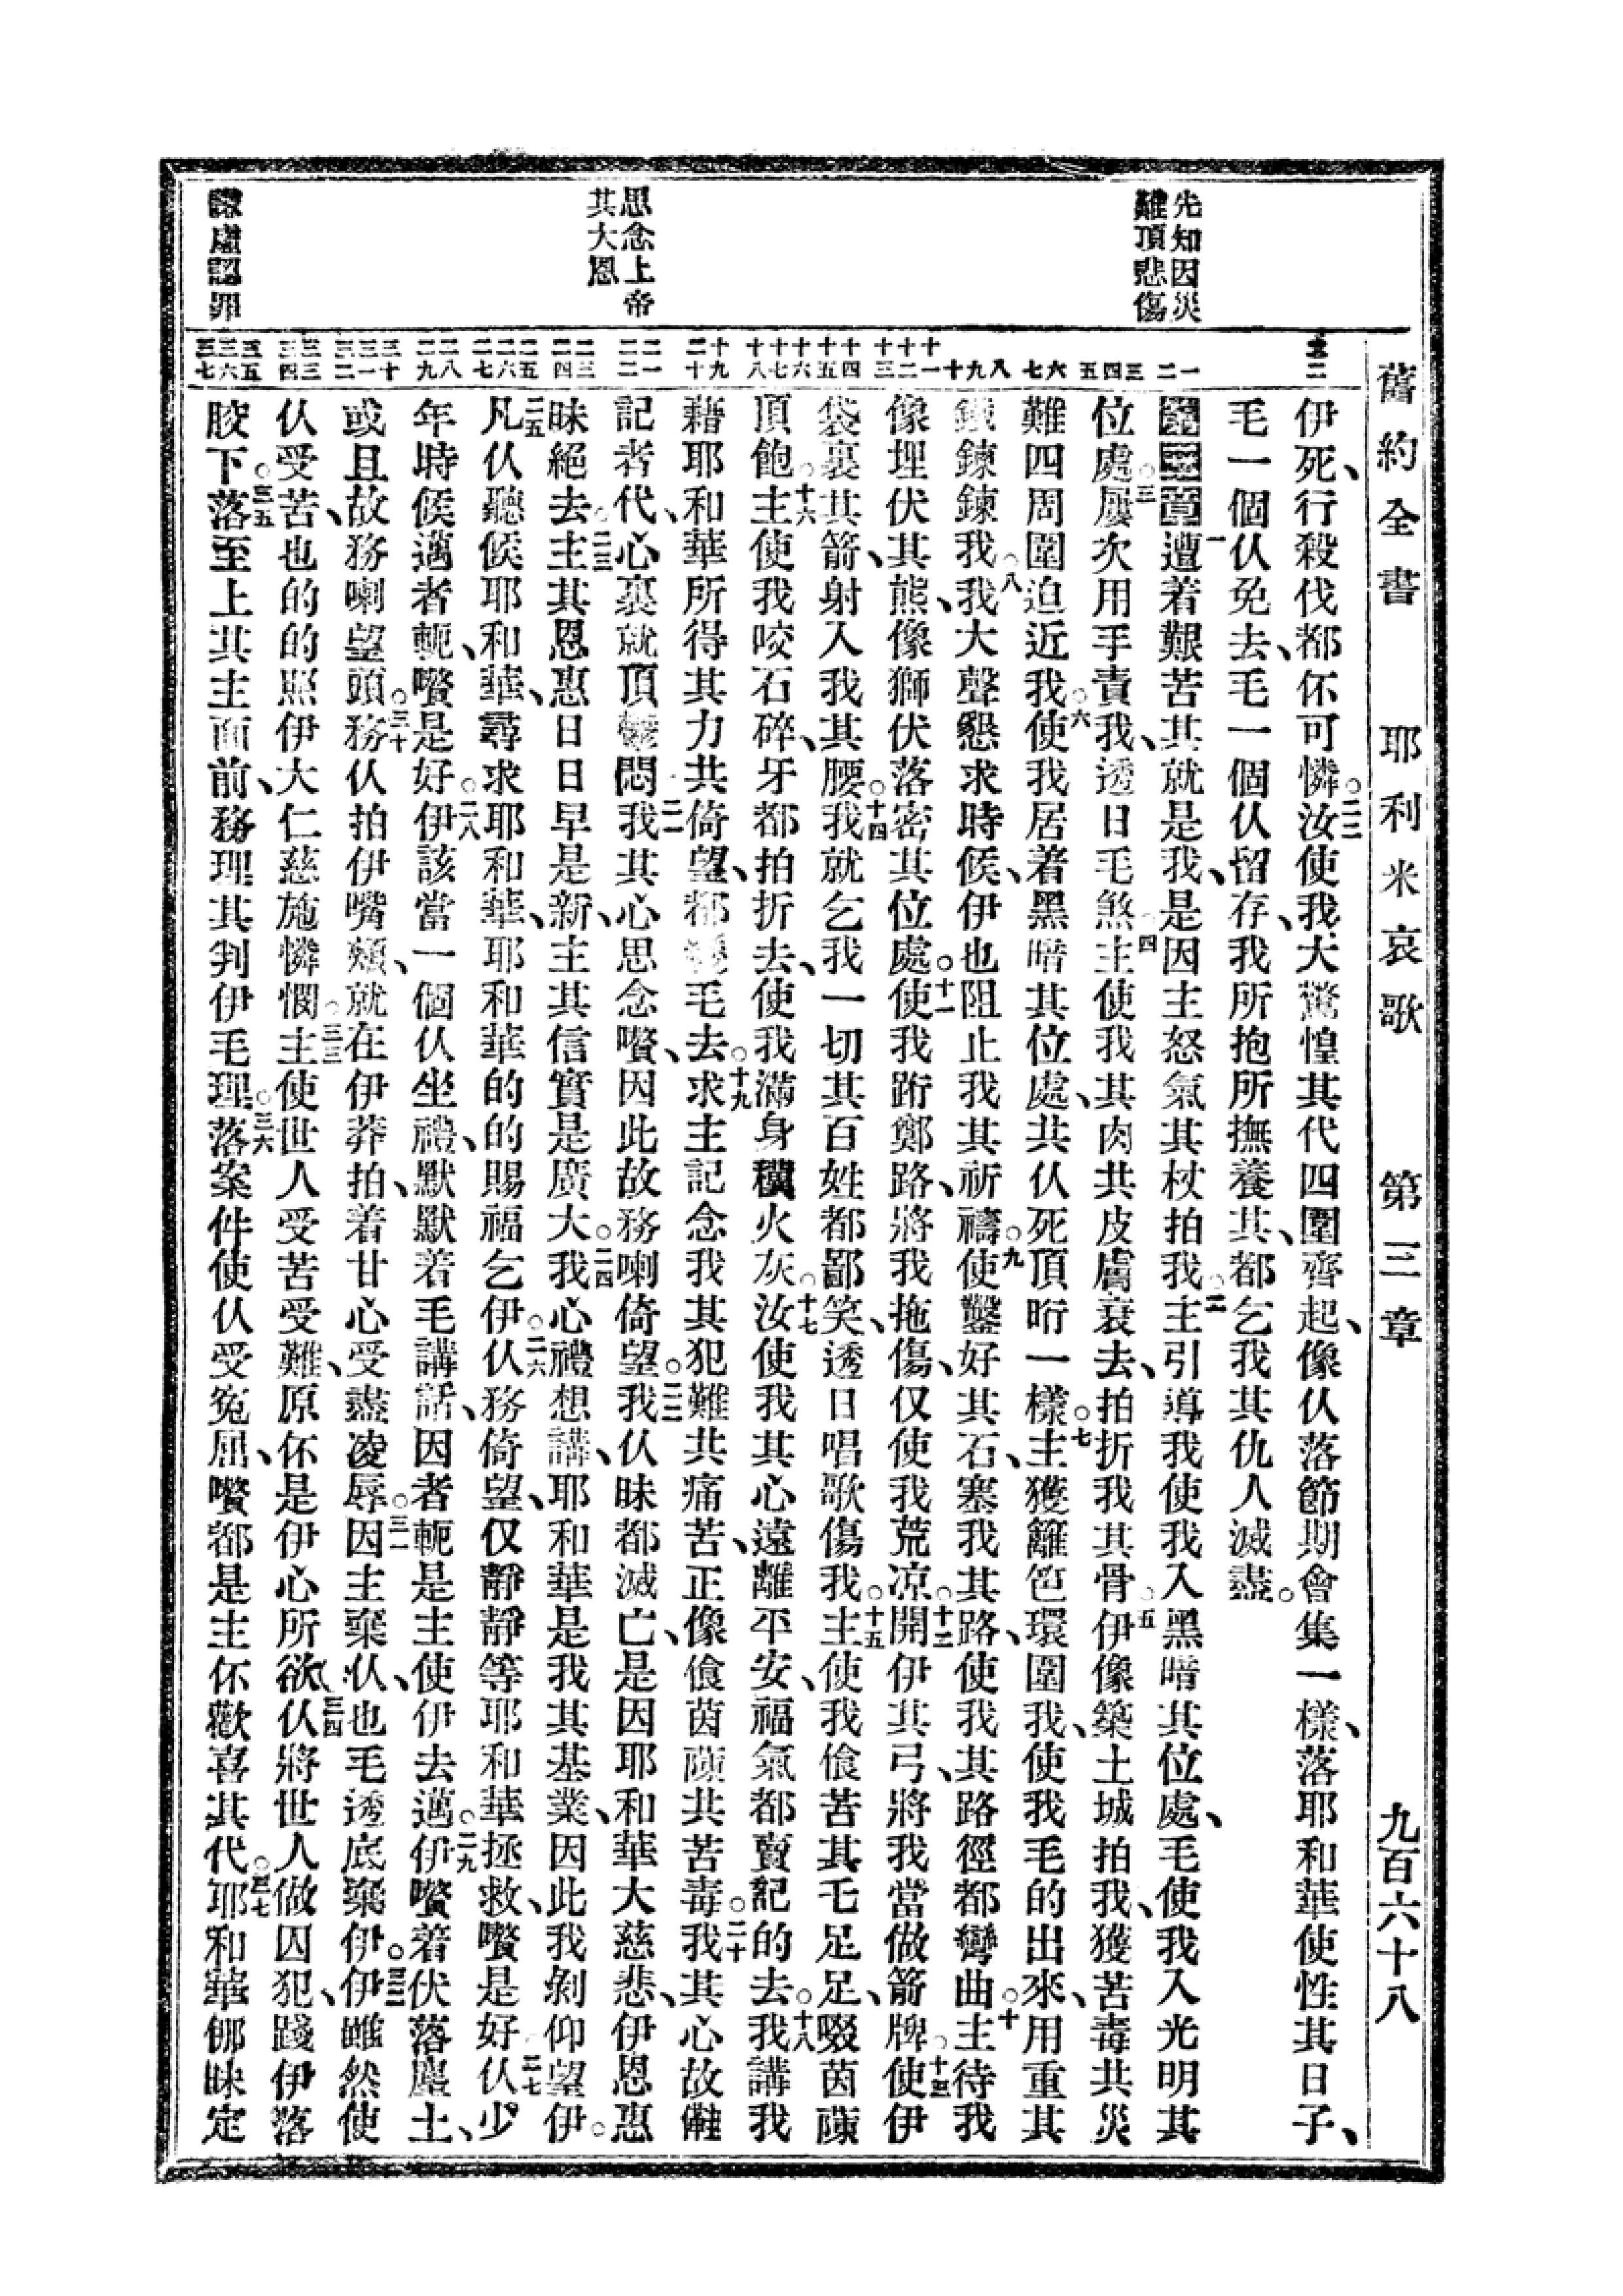 舊約全書 耶利米哀歌 第三章 九百六十八
先知因災
難頂悲傷
思念上帝
其大恩
謙虛認罪
伊死、行殺伐、都伓可憐。二二汝使我大驚惶其代、四圍齊起、像仈落節期會集一樣、落耶和華使性其日子、
毛一個仈免去、毛一個仈留存、我所抱所撫養其、都乞我其仇人滅盡。
第三章一遭着艱苦其就是我、是因主怒氣其杖拍我。二主引導我使我入黑暗其位處、毛使我入光明其
位處。三屢次用手責我、透日毛煞。四主使我其肉共皮膚衰去、拍折我其骨。五伊像築土城拍我、獲苦毒共災
難四周圍迫近我。六使我居着黑暗其位處、共仈死頂㫄一樣。七主獲籬笆環圍我、使我毛的出來、用重其
鐵鍊鍊我。八我大聲懇求時候、伊也阻止我其祈禱。九使鑿好其石、塞我其路、使我其路徑都彎曲。十主待我
像埋伏其熊、像獅伏落密其位處。十一使我跒鄭路、將我拖傷、仅使我荒凉。十二開伊其弓、將我當做箭牌。十三使伊
袋裏其箭、射入我其腰。十四我就乞我一切其百姓都鄙笑、透日唱歌傷我。十五主使我飡苦其乇足足、啜茵蔯
頂飽。十六主使我咬石碎、牙都拍折去、使我滿身穳火灰。十七汝使我其心遠離平安、福氣都賣記的去。十八我講我
藉耶和華所得其力共倚望、都毛去。十九求主記念我其犯難共痛苦、正像飡茵蔯共苦毒。二十我其心故㒬
記者代、心裏就頂鬱悶。二一我其心思念嚽、因此故務喇倚望。二二我仈昧都滅亡、是因耶和華大慈悲、伊恩惠
昧絕去。二三主其恩惠日日早是新、主其信實是廣大。二四我心禮想講、耶和華是我其基業、因此我剝仰望伊。
二五凡仈聽候耶和華、尋求耶和華、耶和華的的賜福乞伊。二六仈務倚望、仅靜靜等耶和華拯救、嚽是好。二七仈少
年時候邁者軛、嚽是好。二八伊該當一個仈坐禮、默默着毛講話、因者軛是主使伊去邁。二九伊嚽着伏落塵土、
或且故務喇望頭。三十務仈拍伊嘴頰、就在伊莽拍、着甘心受盡凌辱。三一因主棄仈、也毛透底棄伊。三二伊雖然使
仈受苦、也的的照伊大仁慈施憐憫。三三主使世人受苦受難、原伓是伊心所欲。三四仈將世人做囚犯、踐伊落
骹下。三五落至上其主面前、務理其判伊毛理。三六落案件使仈受冤屈、嚽都是主伓歡喜其代。三七耶和華㑚昧定